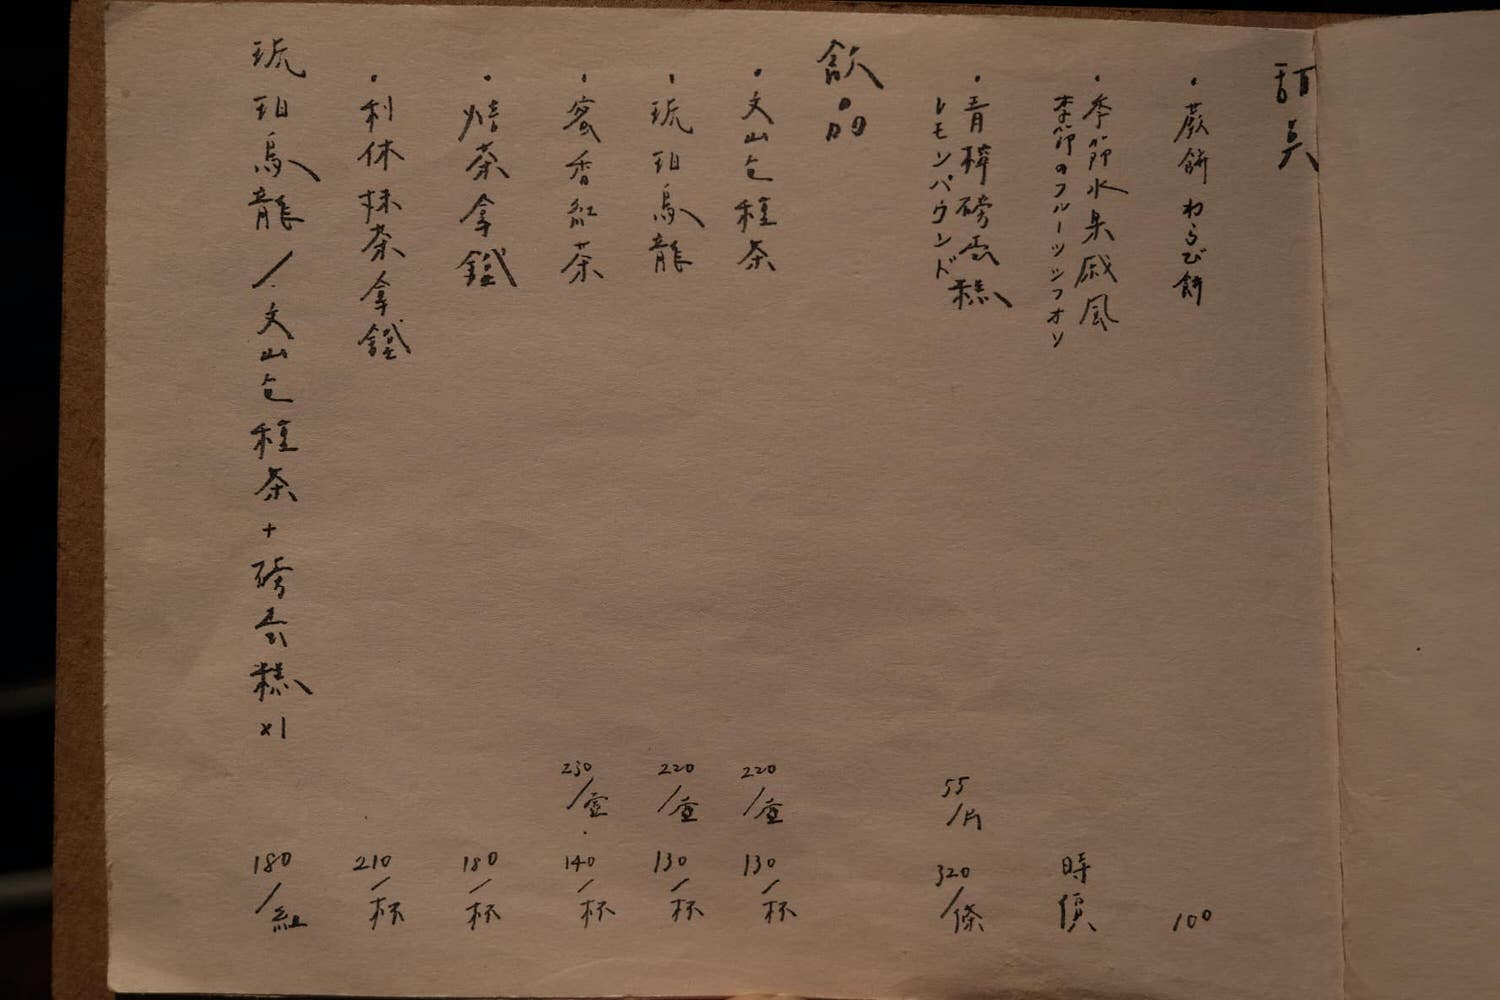 甜點
・蕨餅 わらび餅
100
・季節水果戚風
季節のフルーツシフォン
時價
・青檸磅蛋糕
レモンパウンド
55/片
320/條
飲品
・文山包種茶
220/壺
130/杯
・琥珀烏龍
220/壺
130/杯
・蜜香紅茶
230/壺
140/杯
・焙茶拿鐵
180/杯
・利休抹茶拿鐵
210/杯
琥珀烏龍/文山包種茶+磅蛋糕x1
180/組